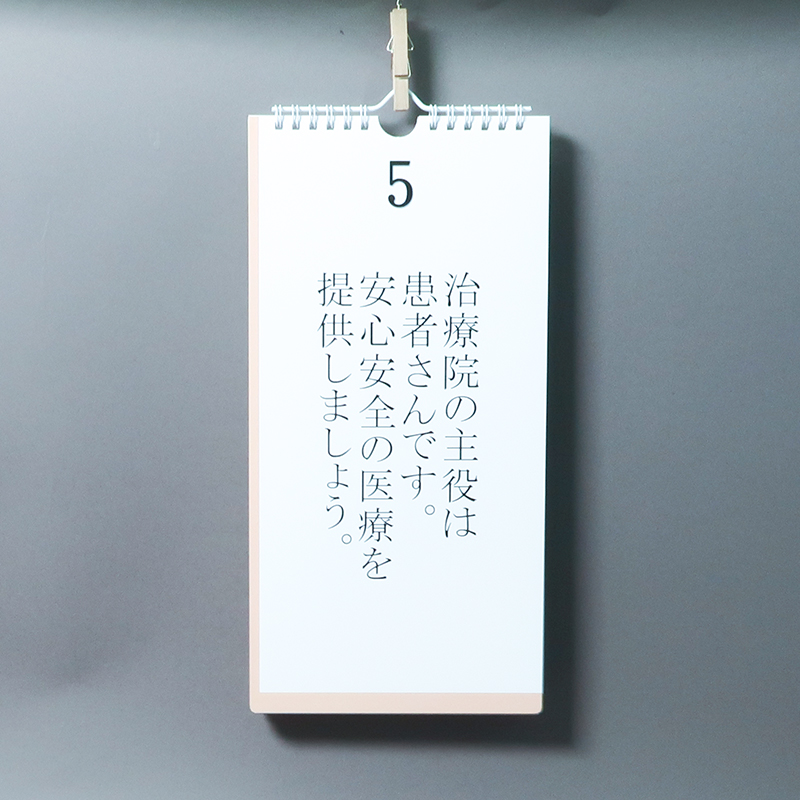 5
治療院の主役は
患者さんです。
安心安全の医療を
提供しましょう。